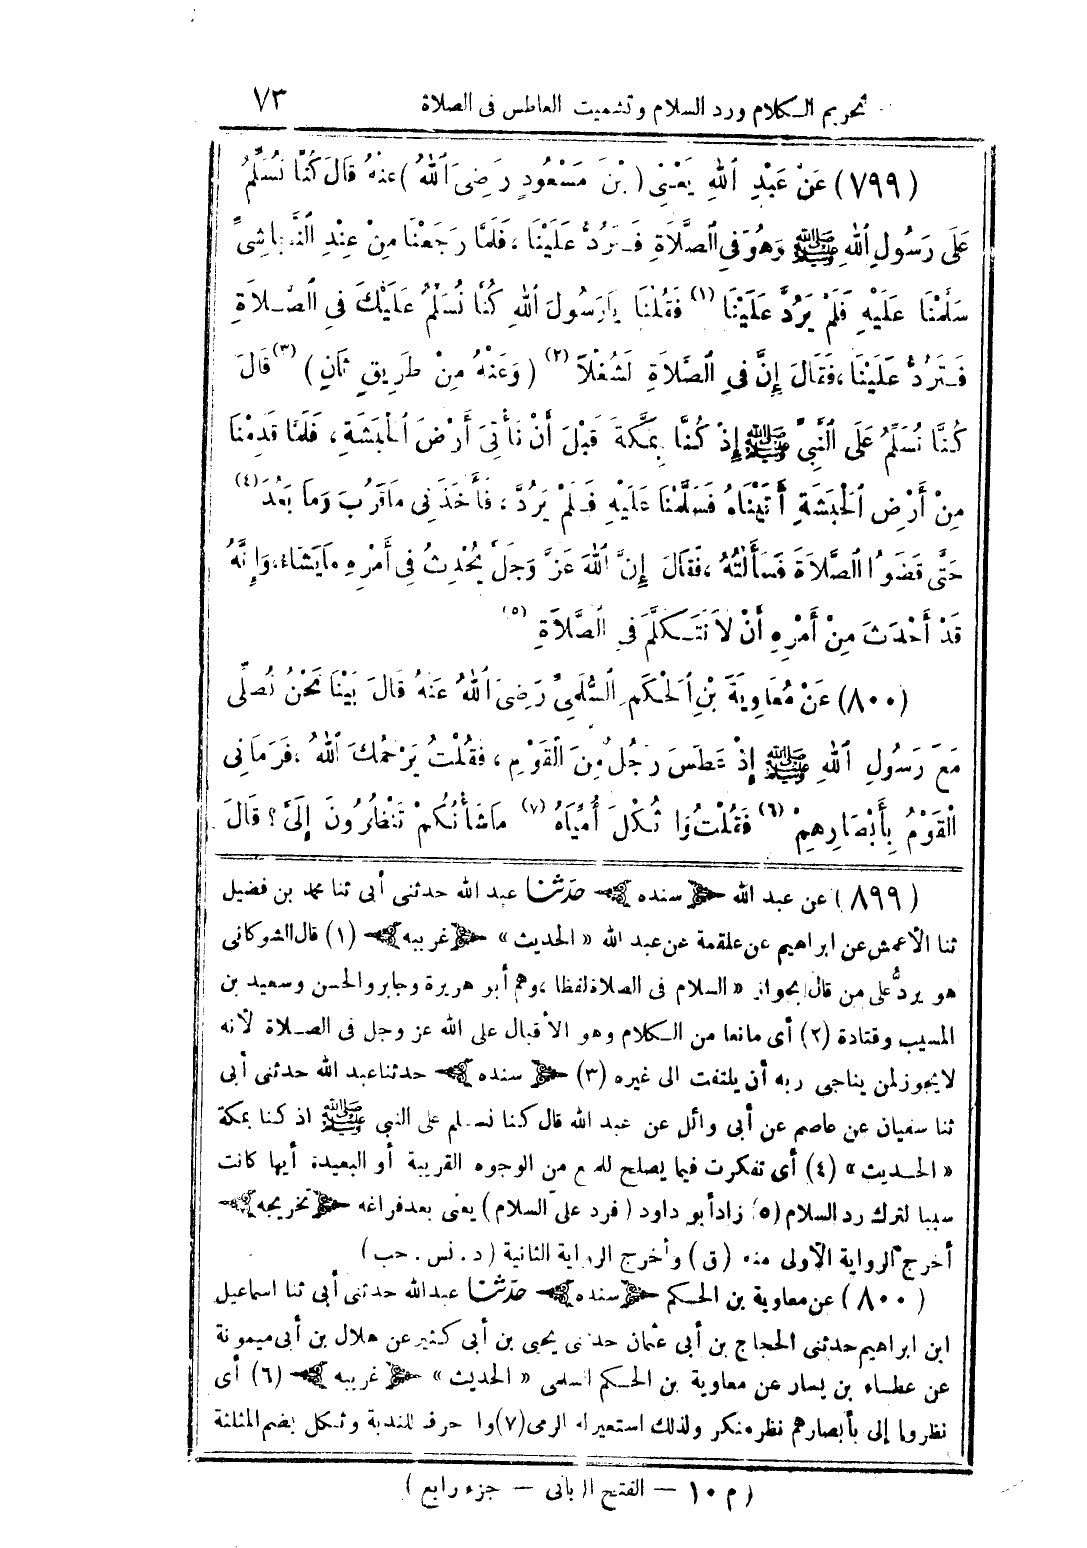 تحريم الكلام ورد السلام وتشميت العاطس فى الصلاة ٧٣
(٧٩٩) عَنْ عَبْدِ اللهِ يَعْنِى (بْنَ مَسْعُودٍ رَضِىَ اللهُ) عنْهُ قَالَ كُنَّا نُسَلِّمُ
عَلَى رَسُولِ اللهِ ﷺ وَهُوَ فِى الصَّلَاةِ فَـيَرُدُّ عَلَيْنَا، فَلَمَّا رَجَعْنَا مِنْ عِنْدِ النَّجَاشِىِّ
سَلَّمْنَا عَلَيْهِ فَلَمْ يَرُدَّ عَلَيْنَا (١) فَقُلْنَا يَارَسُولَ اللهِ كُنَّا نُسَلِّمُ عَلَيْكَ فِى الصَّـلَاةِ
فَـتَرُدُّ عَلَيْنَا، فَقَالَ إِنَّ فِى الصَّلَاةِ لَشُغْلاً (٢) (وَعَنْهُ مِنْ طَرِيقٍ ثَانٍ) (٣) قَالَ
كُنَّا نُسَلِّمُ عَلَى النَّبِىِّ ﷺ إِذْ كُنَّا بِمَكَّةَ قَبْلَ أَنْ نَأْتِىَ أَرْضَ الْحَبَشَةِ، فَلَمَّا قَدِمْنَا
مِنْ أَرْضِ الْحَبَشَةِ أَتَيْنَاهُ فَسَلَّمْنَا عَلَيْهِ فَـلَمْ يَرُدَّ، فَأَخَذَنِى مَاقَرُبَ وَمَا بَعُدَ (٤)
حَتَّى قَضَوُا الصَّلَاةَ فَسَأَلْتُهُ، فَقَالَ إِنَّ اللهَ عَزَّ وَجَلَّ يُحْدِثُ فِى أَمْرِهِ مَايَشَاءُ، وَإِنَّهُ
قَدْ أَحْدَثَ مِنْ أَمْرِهِ أَنْ لَا نَتَـكَلَّمَ فِى الصَّلَاةِ (٥)
(٨٠٠) عَنْ مُعَاوِيَةَ بْنِ الْحَكَمِ السُّلَمِىِّ رَضِىَ اللهُ عَنْهُ قَالَ بَيْنَا نَحْنُ نُصَلِّى
مَعَ رَسُولِ اللهِ ﷺ إِذْ عَطَسَ رَجُلٌ مِنَ الْقَوْمِ، فَقُلْتُ يَرْحَمُكَ اللهُ، فَرَمَانِى
الْقَوْمُ بِأَبْصَارِهِمْ (٦) فَقُلْتُ وَا ثُكْلَ أُمِّيَاهُ (٧) مَاشَأْنُكُمْ تَنْظُرُونَ إِلَىَّ؟ قَالَ
(٨٩٩) عن عبد الله ﴿سنده﴾ حَدَّثَنَا عبد الله حدثنى أبى ثنا محمد بن فضيل
ثنا الأعمش عن ابراهيم عن علقمة عن عبد الله «الحديث» ﴿غريبه﴾ (١) قال الشوكانى
هو يردُّ على من قال بجواز «السلام فى الصلاة لفظا، وهم أبو هريرة وجابر والحسن وسعيد بن
المسيب وقتادة (٢) أى مانعا من الـكلام وهو الأقبال على الله عز وجل فى الصـلاة لأنه
لايجوز لمن يناجى ربه أن يلتفت الى غيره (٣) ﴿سنده﴾ حدثنا عبد الله حدثنى أبى
ثنا سفيان عن عاصم عن أبى وائل عن عبد الله قال كنا نسـلم على النبى ﷺ اذ كنا بمكة
«الحـديث» (٤) أى تفكرت فيما يصلح للمنع من الوجوه القريبة أو البعيدة أيها كانت
سببا لترك رد السلام (٥) زاد أبو داود (فرد علىّ السلام) يعنى بعد فراغه ﴿تخريجه﴾
أخرج الرواية الأولى منه (ق) وأخرج الرواية الثانية (د. نس. حب)
(٨٠٠) عن معاوية بن الحـكم ﴿سنده﴾ حَدَّثَنَا عبدالله حدثنى أبى ثنا اسماعيل
ابن ابراهيم حدثنى الحجاج بن أبى عثمان حدثنى يحيى بن أبى كثير عن هلال بن أبى ميمونة
عن عطـاء بن يسار عن معاوية بن الحـكم السلمى «الحديث» ﴿غريبه﴾ (٦) أى
نظروا إلى بأبصارهم نظر منكر ولذلك استعير له الرمى (٧) وا حرف للندبة وثـكل بضم المثلثة
(م ١٠ — الفتح الربانى — جزء رابع)